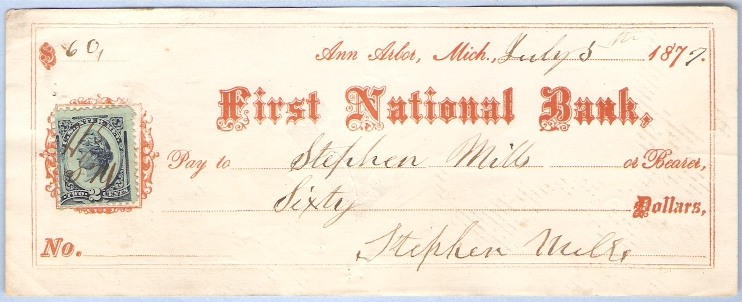 $ 60,
Ann Arbor, Mich., July 5th 1877.
First National Bank,
Pay to Stephen Mills or Bearer,
Sixty Dollars,
No.
Stephen Mills
TWO CENTS